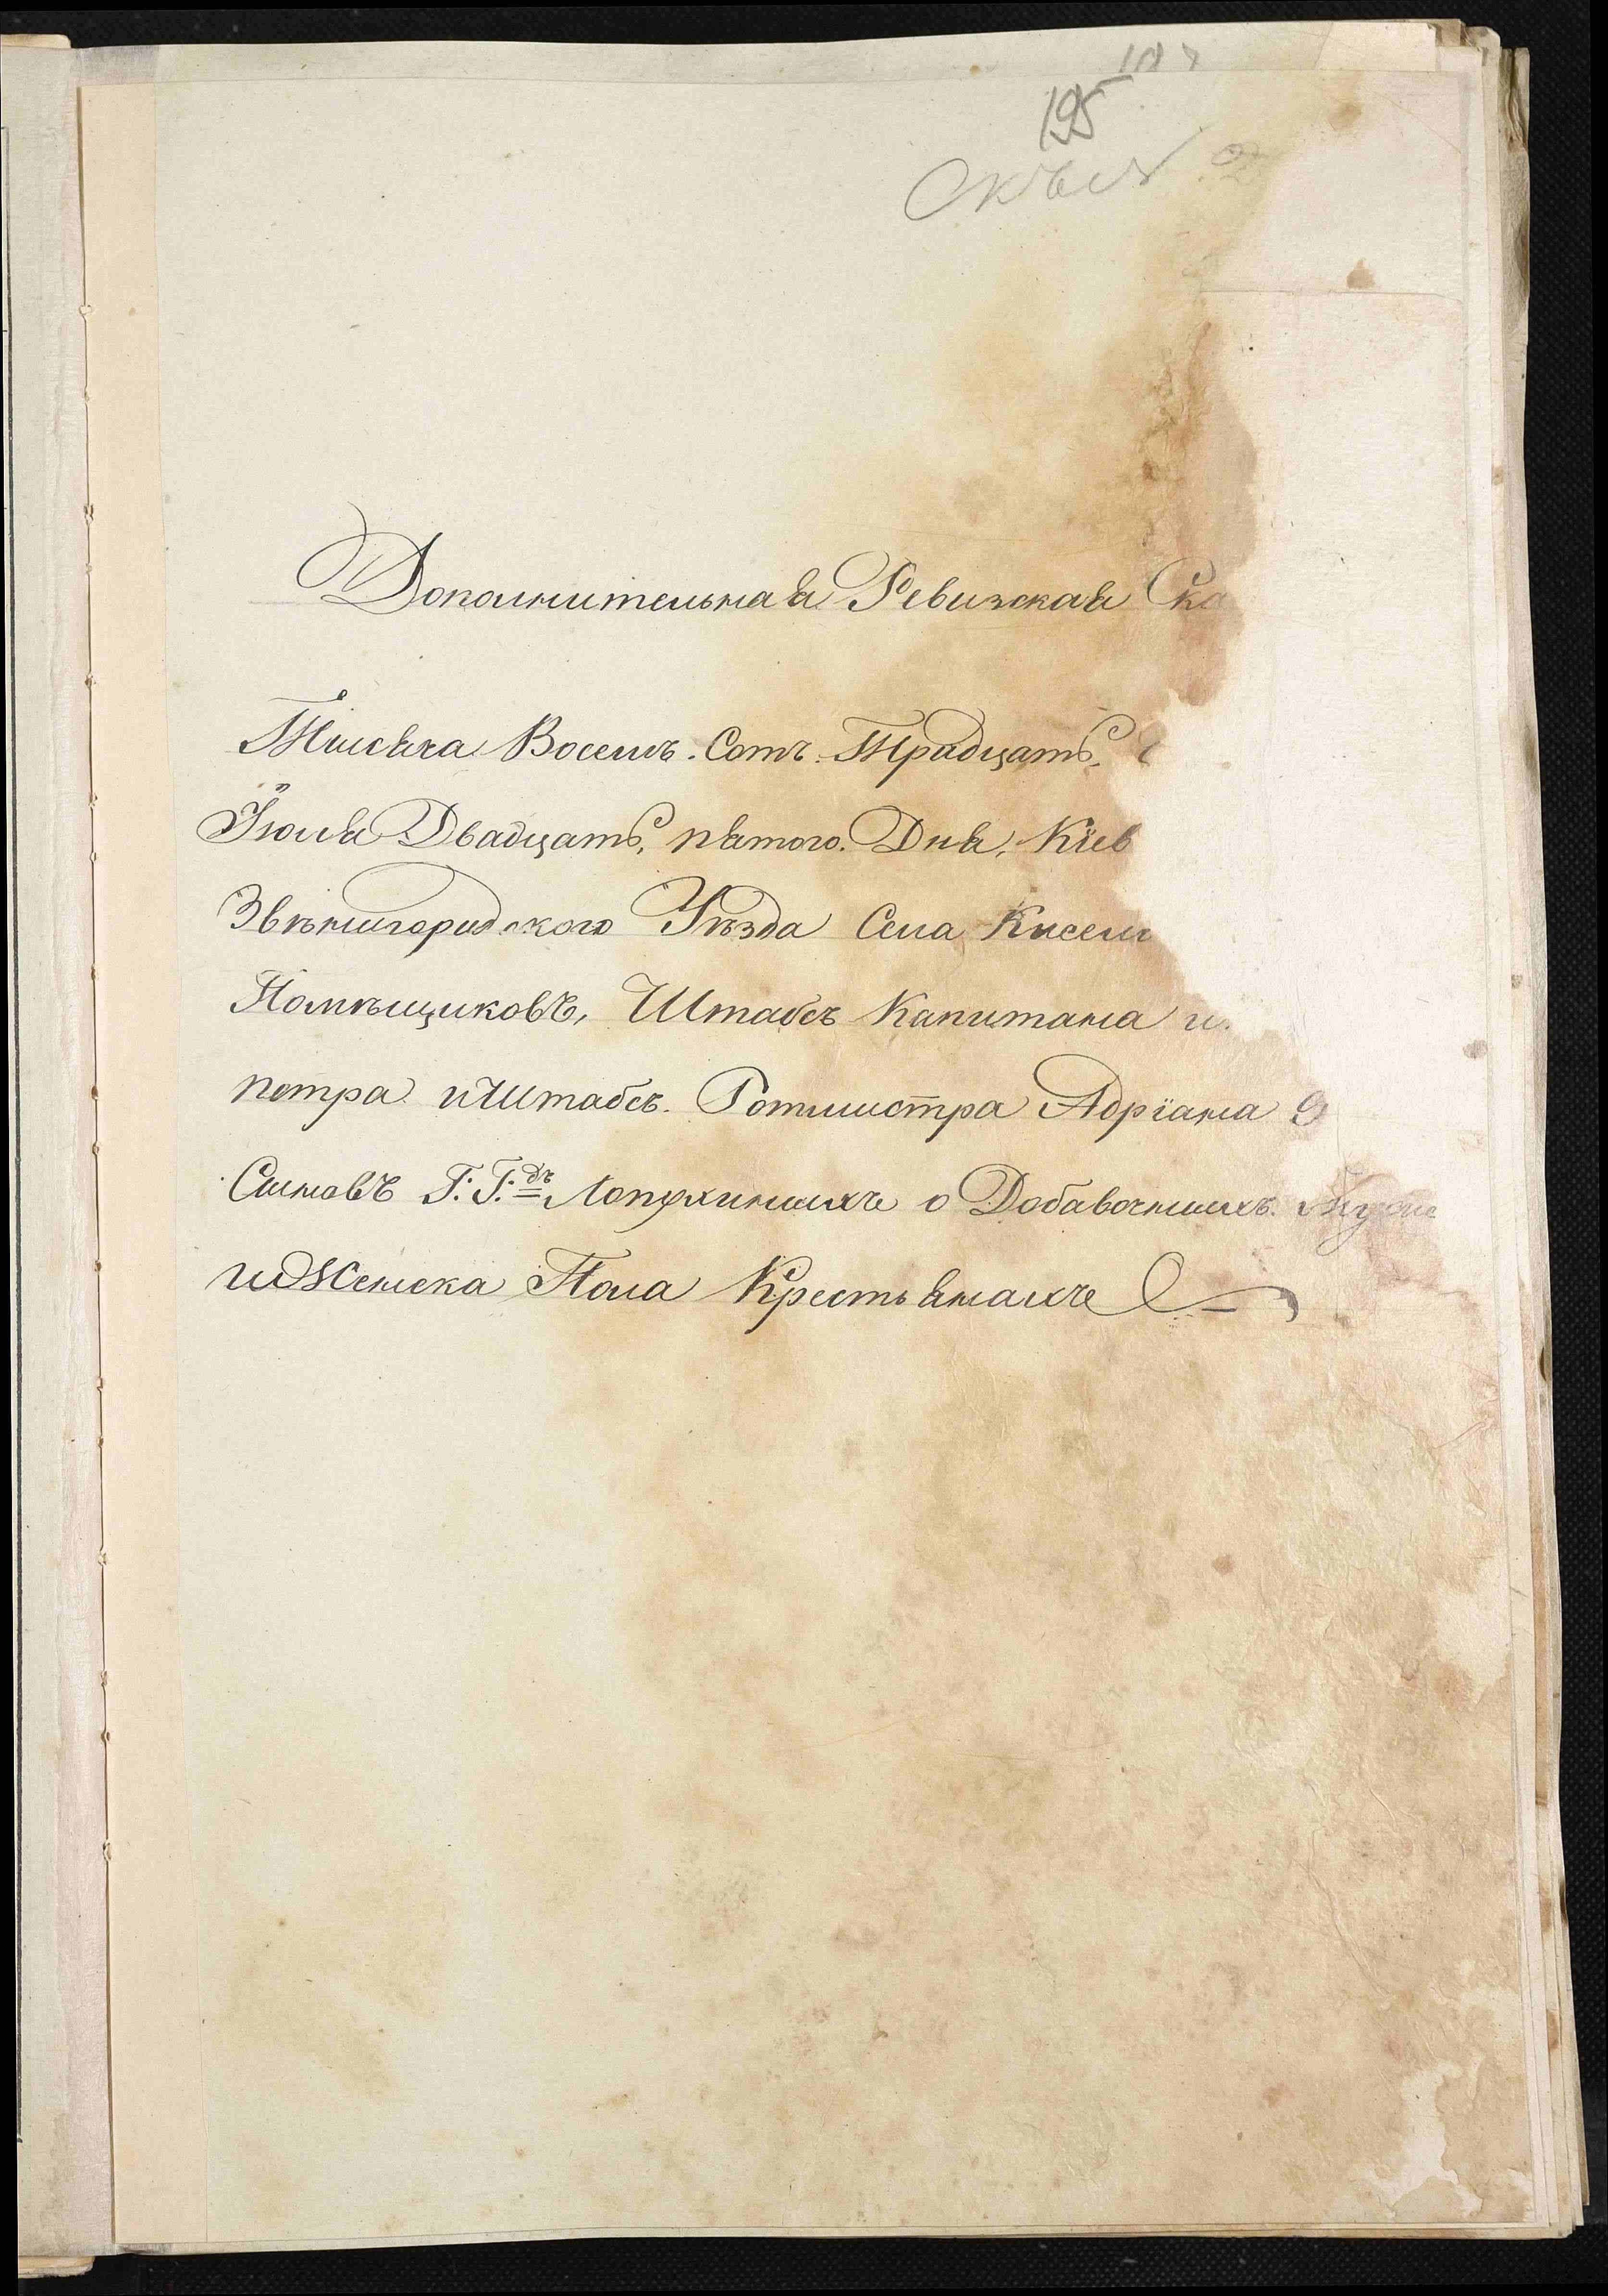 195
Дополнительная Ревизская Ска
Тысяча Восемь. Сотъ. Традцать,
Іюля Двадцать, пятого. Дня, Кіев
Звѣнигородского Уѣзда Села Кисели
Помѣщиковъ, Штабсъ Капитана и.
петра иШтабсъ. Ротмистра Адріана
Сыновъ Г: Г:дъ Лопухиныхъ о Добавочныхъ. Мужс
иЖенска Пола Крестьянахъ